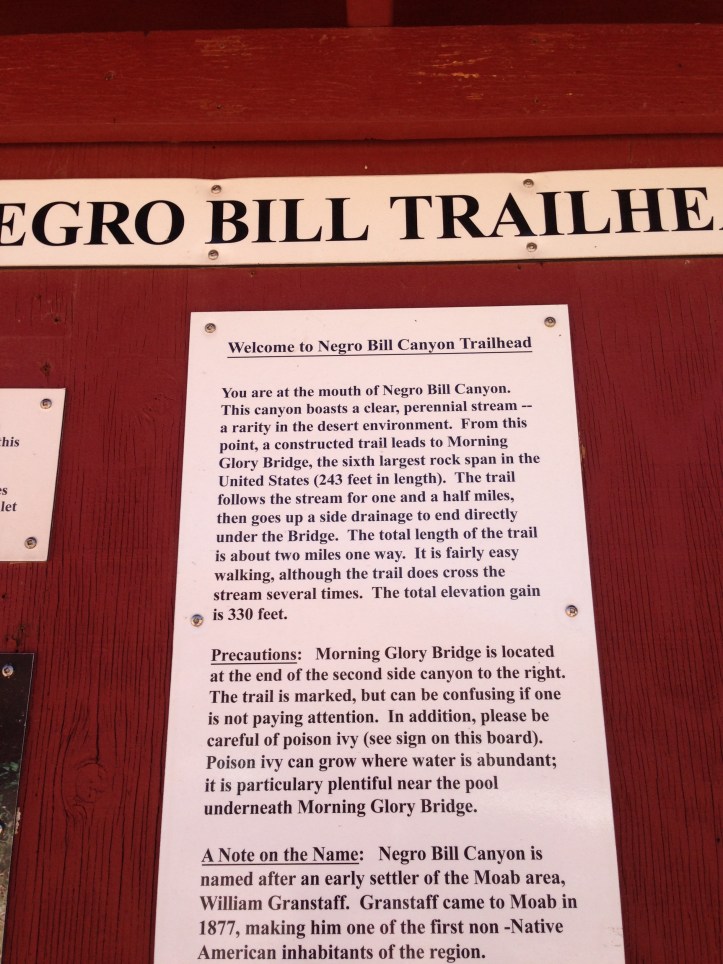 EGRO BILL TRAILHE
Welcome to Negro Bill Canyon Trailhead
You are at the mouth of Negro Bill Canyon.
This canyon boasts a clear, perennial stream --
a rarity in the desert environment. From this
point, a constructed trail leads to Morning
Glory Bridge, the sixth largest rock span in the
United States (243 feet in length). The trail
follows the stream for one and a half miles,
then goes up a side drainage to end directly
under the Bridge. The total length of the trail
is about two miles one way. It is fairly easy
walking, although the trail does cross the
stream several times. The total elevation gain
is 330 feet.
Precautions: Morning Glory Bridge is located
at the end of the second side canyon to the right.
The trail is marked, but can be confusing if one
is not paying attention. In addition, please be
careful of poison ivy (see sign on this board).
Poison ivy can grow where water is abundant;
it is particulary plentiful near the pool
underneath Morning Glory Bridge.
A Note on the Name: Negro Bill Canyon is
named after an early settler of the Moab area,
William Granstaff. Granstaff came to Moab in
1877, making him one of the first non -Native
American inhabitants of the region.
this
es
let